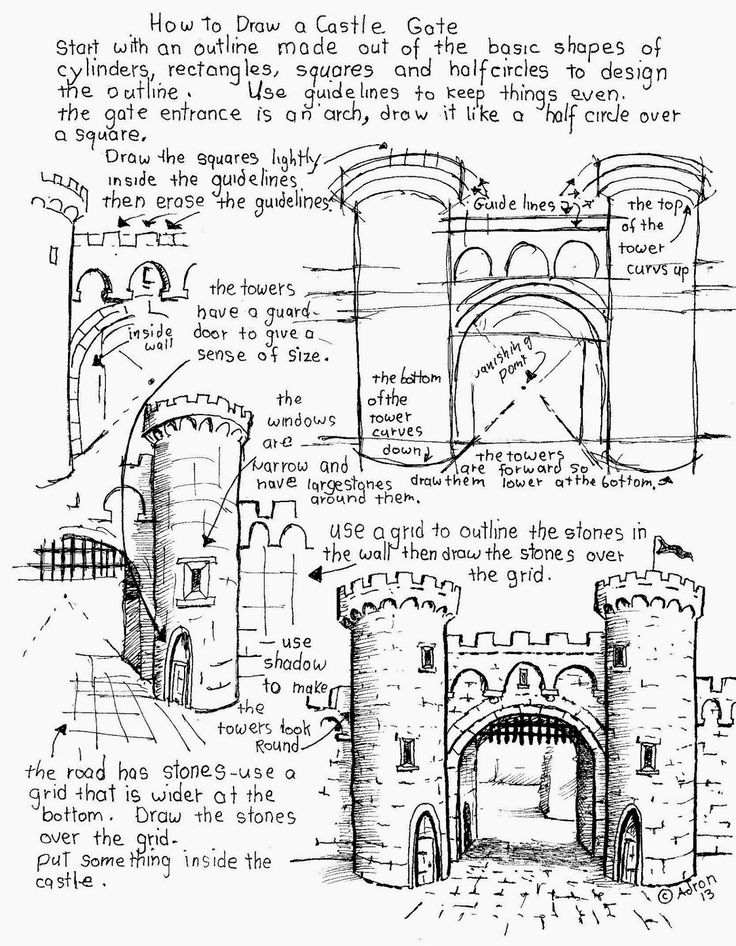 How to Draw a Castle Gate
Start with an outline made out of the basic shapes of
cylinders, rectangles, squares and halfcircles to design
the outline. Use guidelines to keep things even.
the gate entrance is an arch, draw it like a half circle over
a square.
Draw the squares lightly
inside the guidelines
then erase the guidelines.
Guide lines
the top
of the
tower
curvs up
the towers
have a guard-
door to give a
sense of size.
inside
wall
vanishing
point
the bottom
of the
tower
curves
down
the towers
are forward so
draw them lower at the bottom.
the
windows
are
narrow and
have large stones
around them.
use a grid to outline the stones in
the wall then draw the stones over
the grid.
use
shadow
to make
the
towers look
Round
the road has stones-use a
grid that is wider at the
bottom. Draw the stones
over the grid.
put something inside the
castle.
© Adron
13